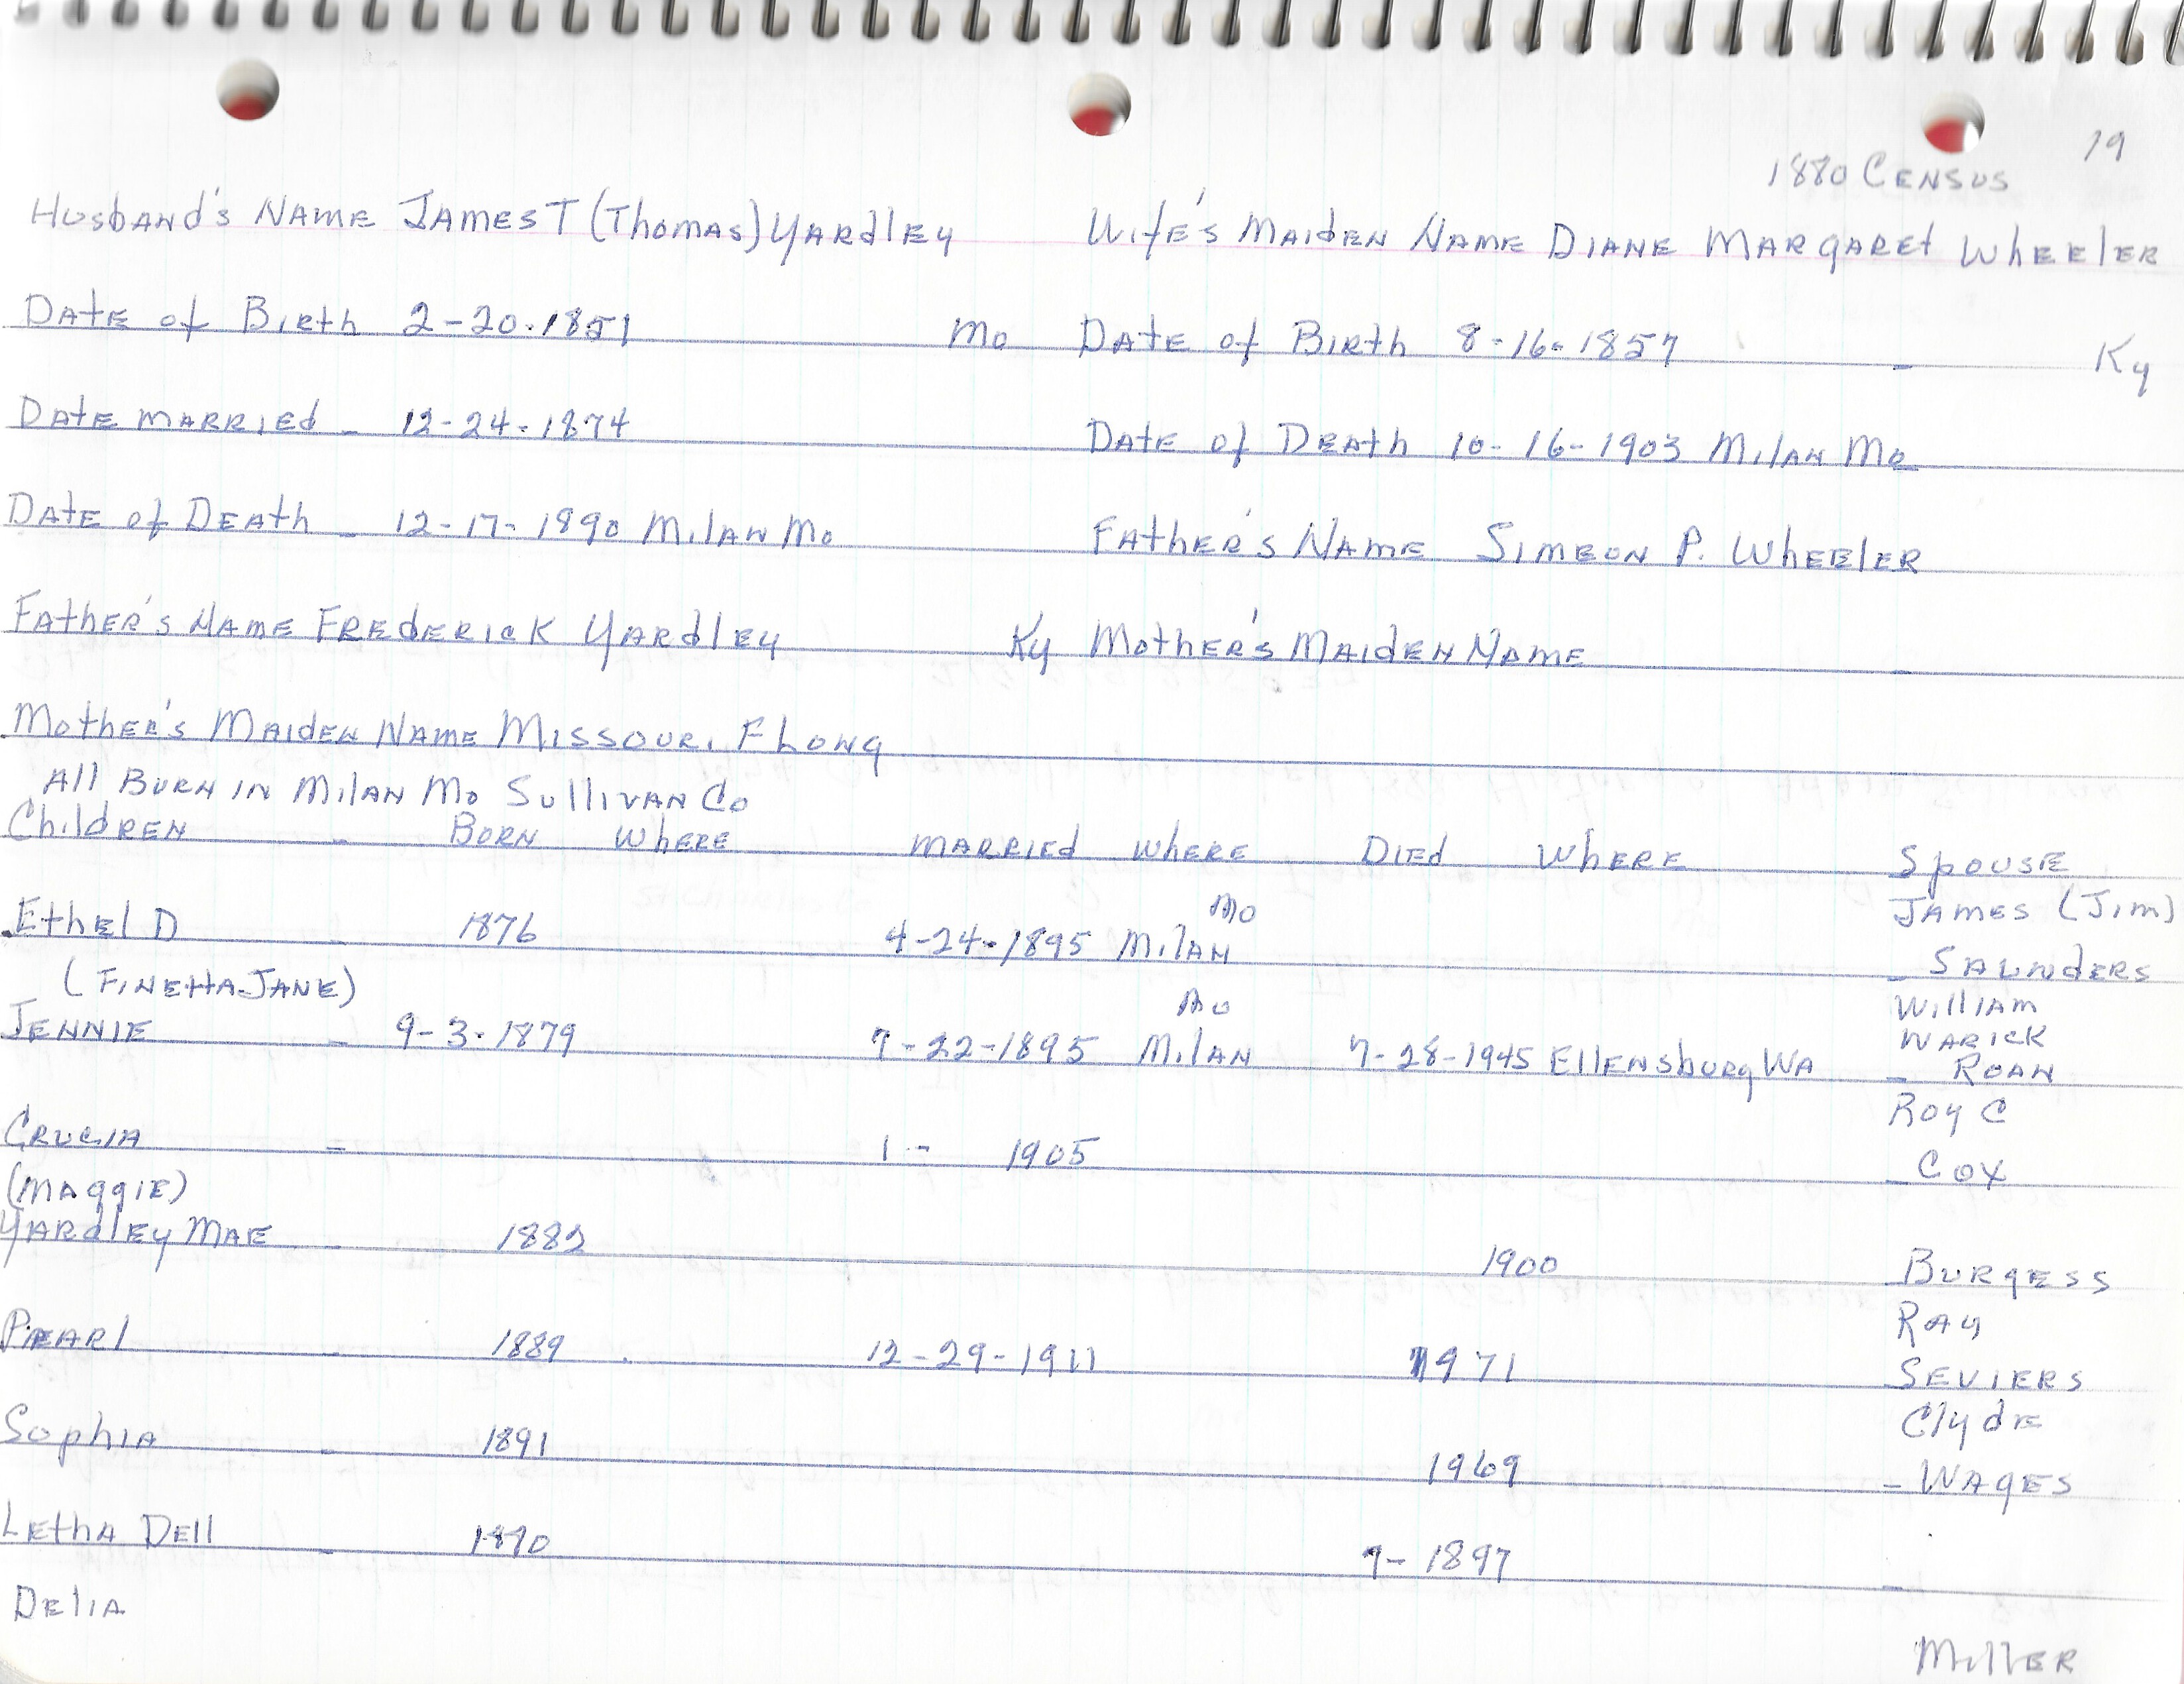 19
1880 CENSUS
Husband's Name James T (Thomas) Yardley Wife's Maiden Name Diane Margaret Wheeler
Date of Birth 2-20-1851 Mo Date of Birth 8-16-1857 Ky
Date Married - 12-24-1874 Date of Death 10-16-1903 Milan Mo
Date of Death - 12-17-1890 Milan Mo Father's Name Simeon P. Wheeler
Father's Name Frederick Yardley Ky Mother's Maiden Name
Mother's Maiden Name Missouri F Long
All Burn in Milan Mo Sullivan Co
Children - Born Where Married Where Died Where Spouse
Mo James (Jim)
Ethel D - 1876 4-24-1895 Milan - Saunders
(Finetta Jane) Mo William
Warick
Jennie - 9-3-1879 7-22-1895 Milan 7-28-1945 Ellensburg WA - Roan
Roy C
Crucia - 1- 1905 - Cox
(Maggie)
Yardley Mae - 1882 1900 - Burgess
Ray
Pearl - 1889 12-29-1911 1971 - Seviers
Clyde
Sophia - 1891 1969 - Wages
Letha Dell - 1890 7-1897 -
Delia
Miller